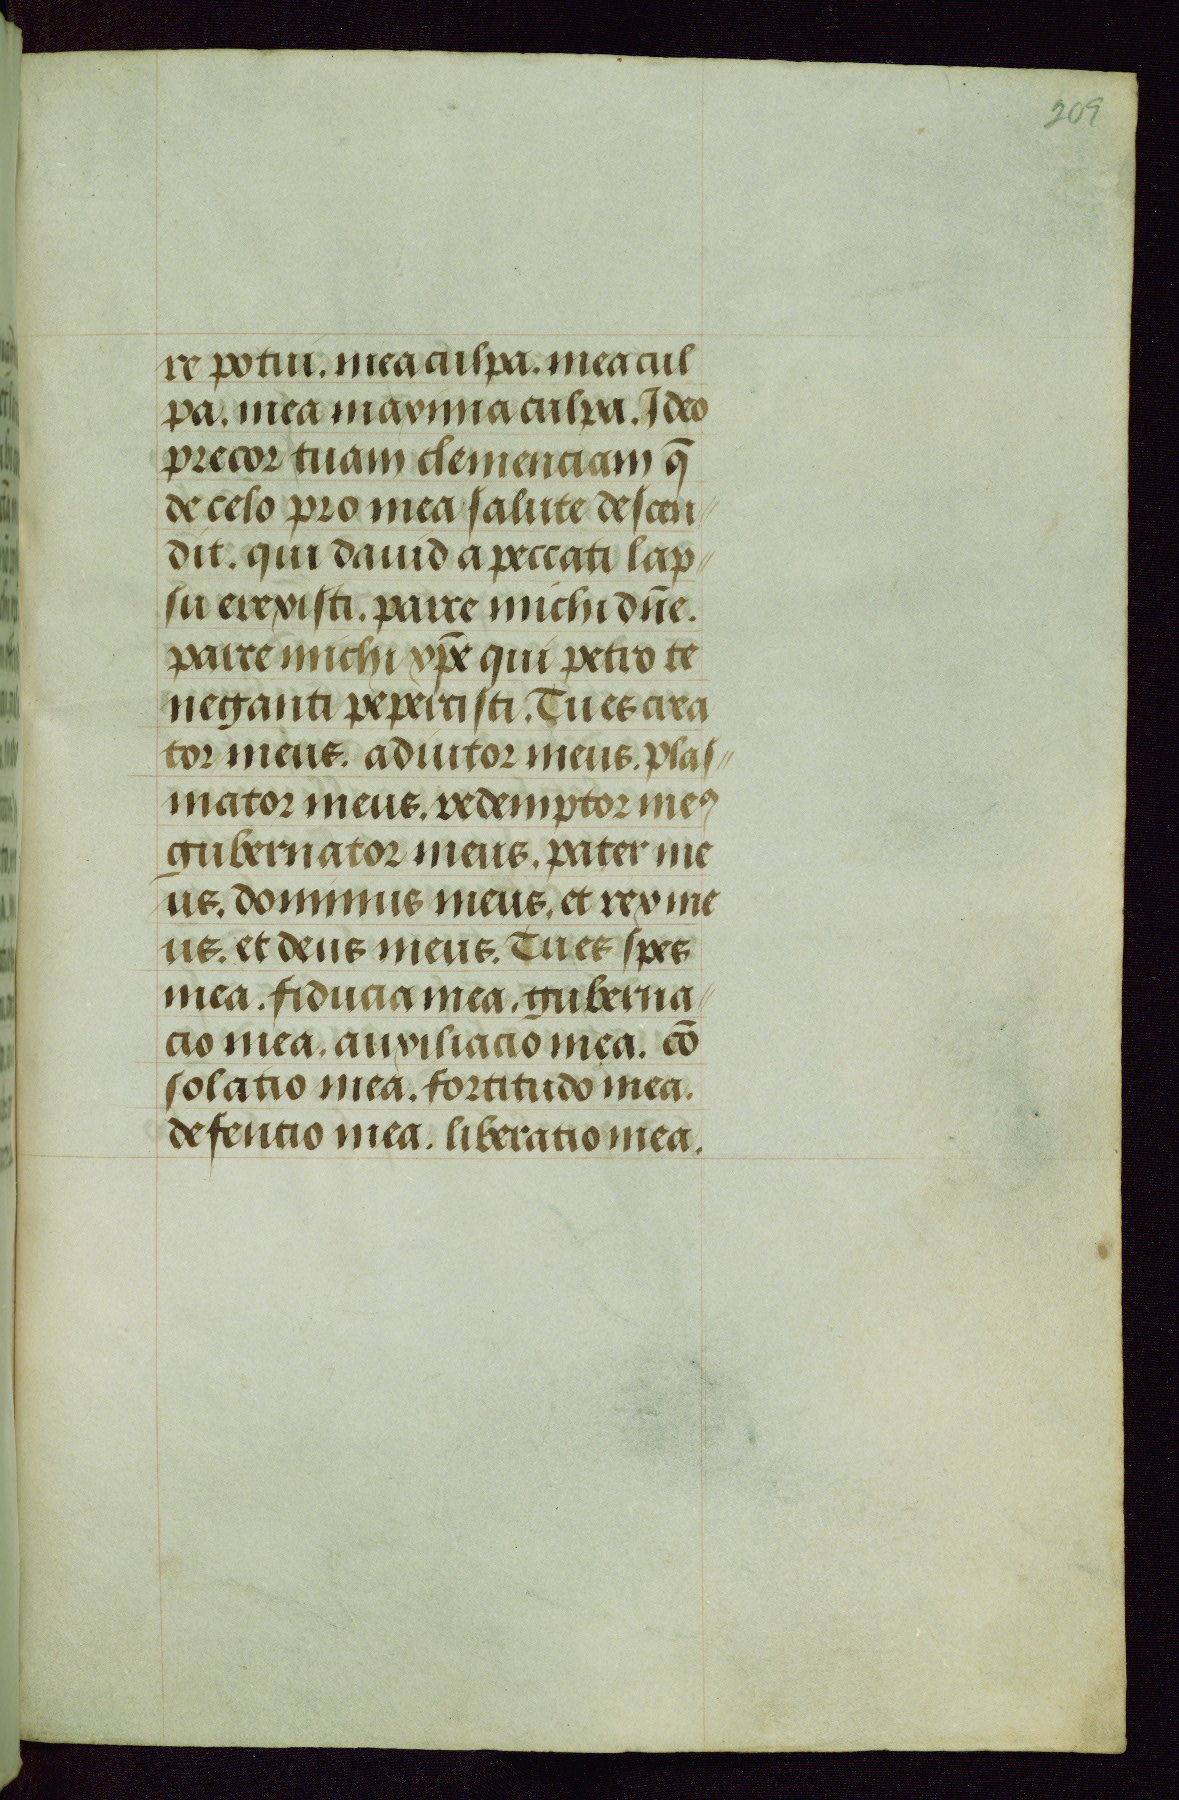 209
re potui. mea culpa. mea cul
pa. mea maxima culpa. Ideo
precor tuam clemenciam q̄
de celo pro mea salute descen〃
dit. qui dauid a peccati lap〃
su erexisti. parce michi dn̄e.
parce michi xp̄e qui petro te
neganti pepercisti. Tu es crea
tor meus. adiutor meus. plas〃
mator meus. redemptor meꝰ
gubernator meus. pater me
us. dominus meus. et rex me
us. et deus meus. Tu es spes
mea. fiducia mea. guberna〃
cio mea. auxiliacio mea. cō
solatio mea. fortitudo mea.
defencio mea. liberatio mea.